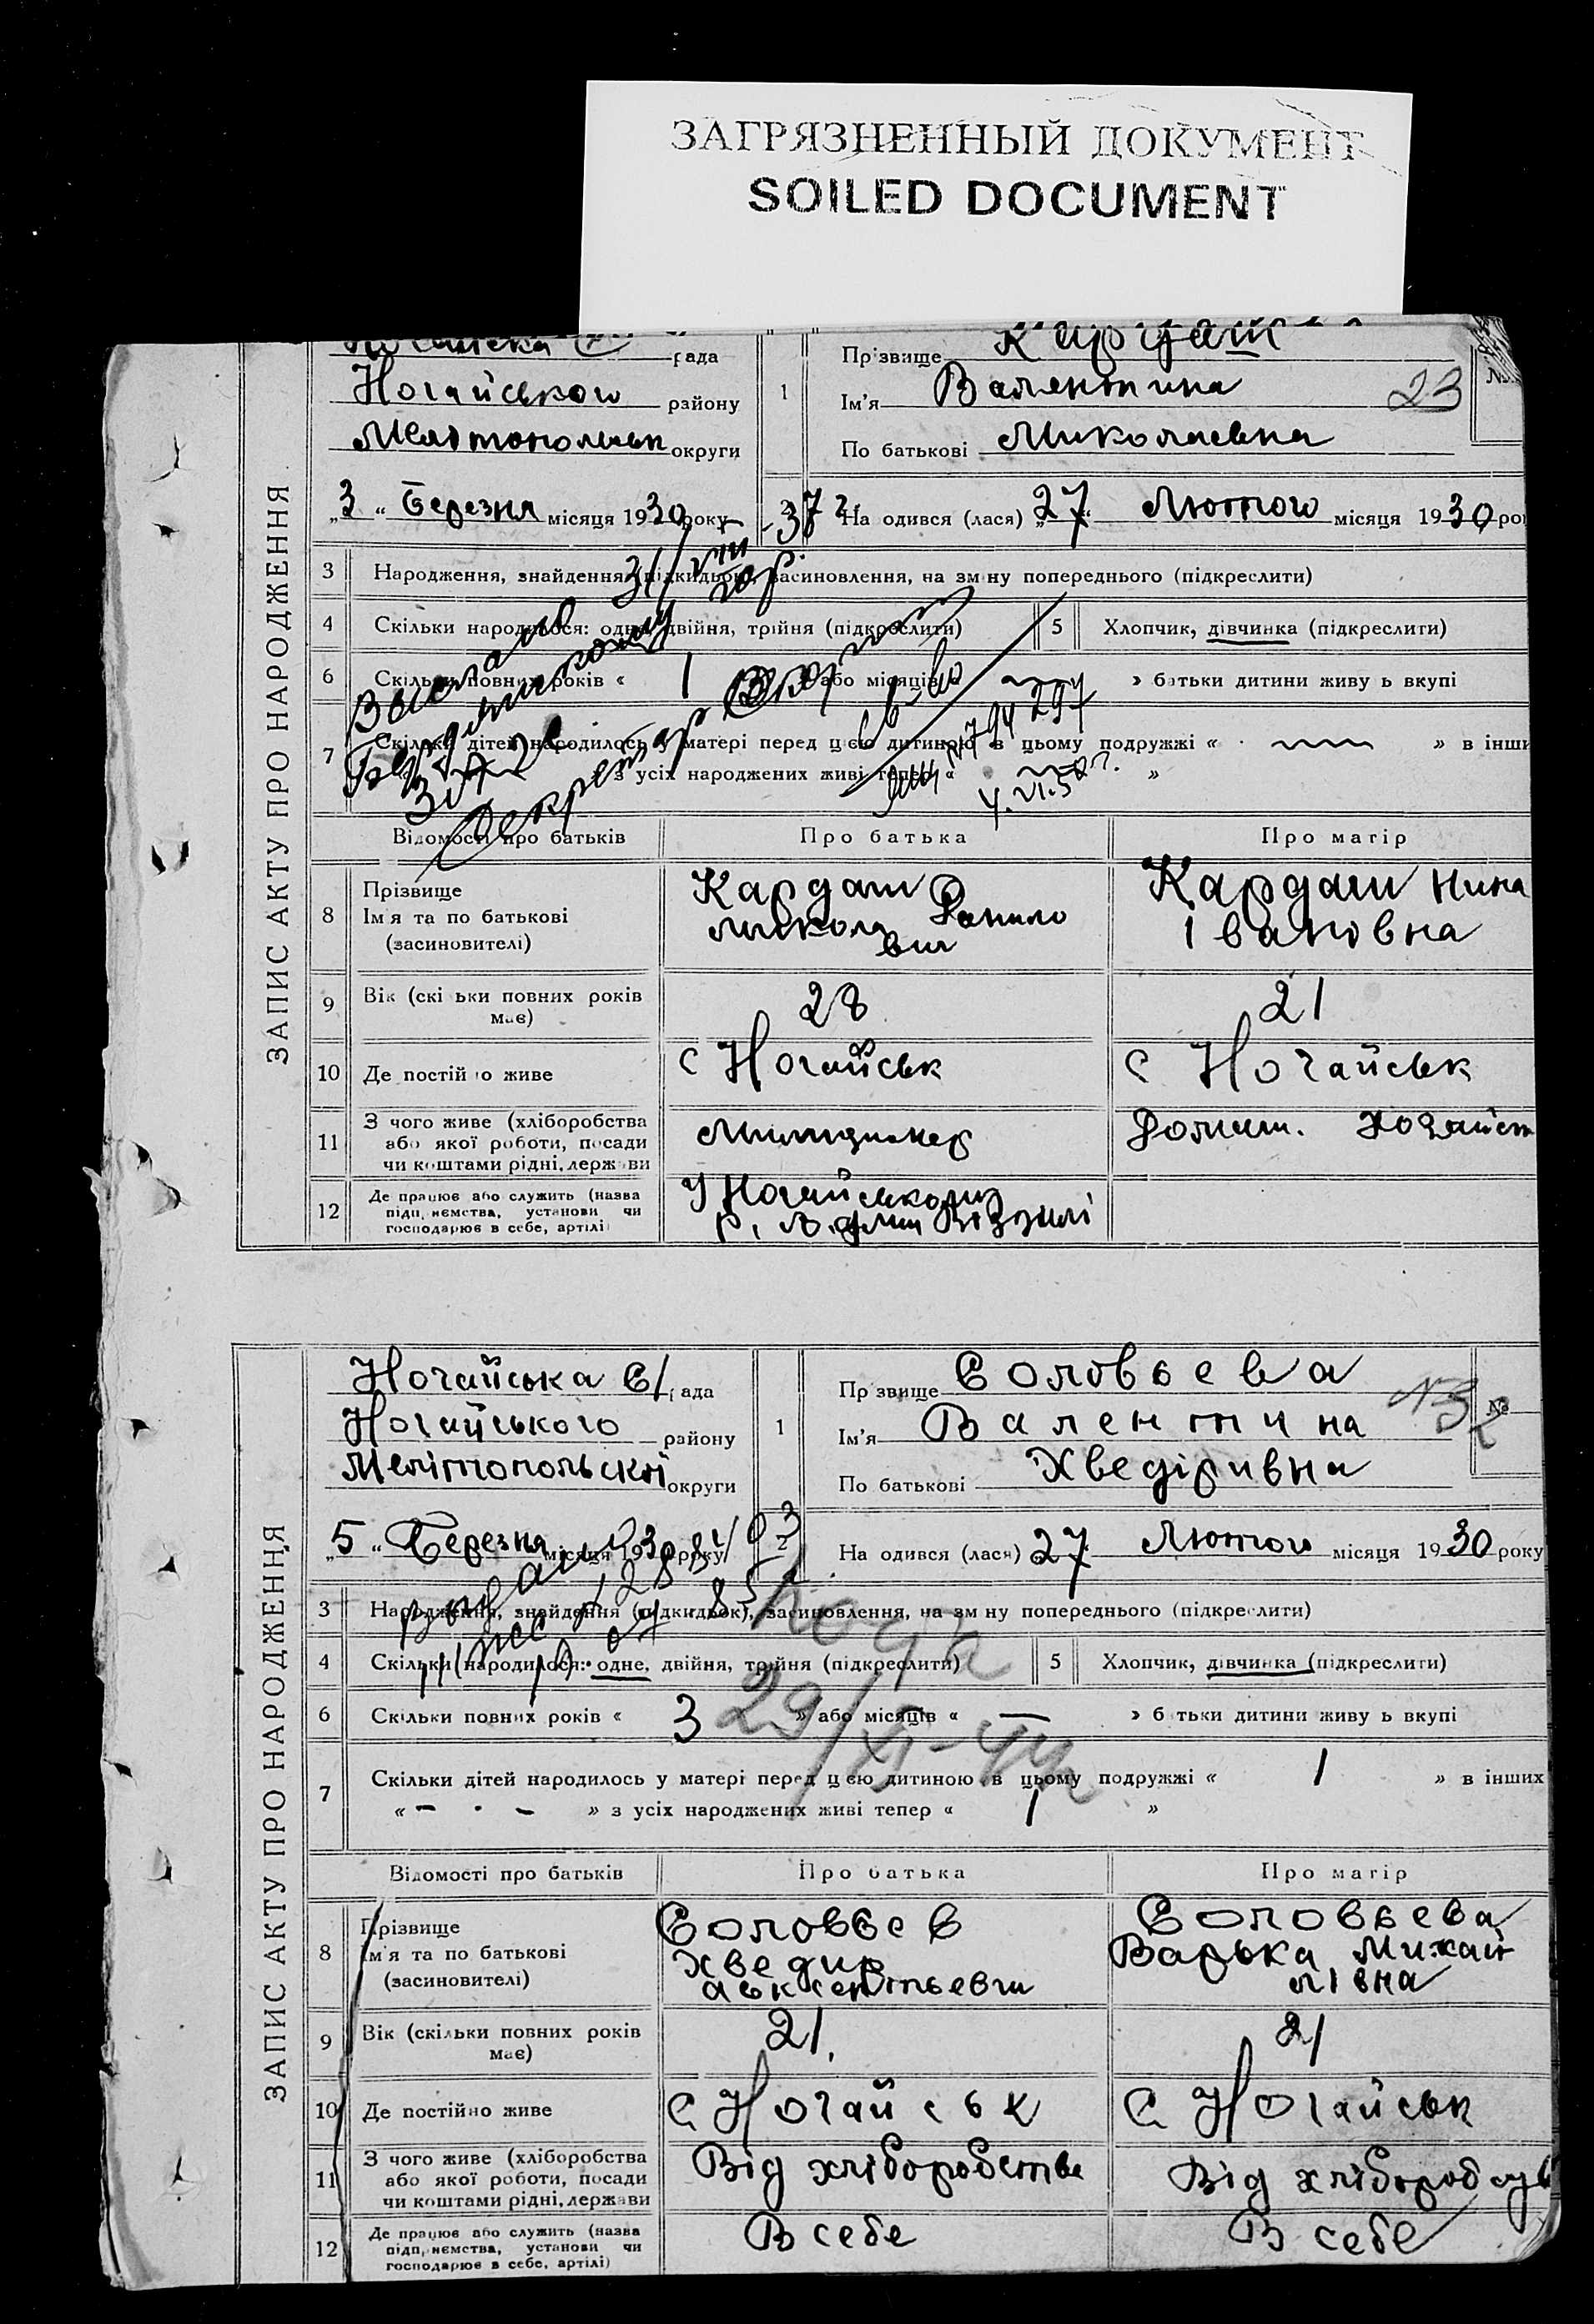 ЗАГРЯЗНЕННЫЙ ДОКУМЕНТ
SOILED DOCUMENT
ЗАПИС АКТУ ПРО НАРОДЖЕННЯ
рада
Ногайського району
округи
„3“ Березня місяця 1930 року
1
Прізвище Кардаш
Ім'я Валентина
23
По батькові Миколаевна
№
2
На одився (лася) „27“ Лютого місяця 1930 ро
3 Народження, знайдення (підкидьок), засиновлення, на зм ну попереднього (підкреслити)
4 Скільки народилося: одне, двійня, трійня (підкреслити) 5 Хлопчик, дівчинка (підкреслити)
6 Скільки повних років « 1 » або місяців « » батьки дитини живу ь вкупі
7 Скільки дітей народилось у матері перед цією дитиною в цьому подружжі « » в інши
з усіх народжених живі тепер « »
Вислано
31/VIII
Секретар
4.VI.5
Відомості про батьків Про батька Про матір
8 Прізвище
Ім'я та по батькові
(засиновителі)
Кардаш
Микола Данило
вич
Кардаш Нина
Івановна
9 Вік (скі ьки повних років
має)
28
21
10 Де постій о живе
с Ногайськ
с Ногайськ
11 З чого живе (хліборобства
або якої роботи, посади
чи коштами рідні, держави
Милиціонер
Домаш. хозяйст
12 Де працює або служить (назва
підприємства, установи чи
господарює в себе, артілі)
У Ногайському
ЗАПИС АКТУ ПРО НАРОДЖЕННЯ
Ногайська С/ ада
Ногайського району
Мелітопольскій округи
„5“ Березня місяця 1930 року
1
Пр звище Соловьева
Ім'я Валентина
№ 32
№
По батькові Хведіривна
2
На одився (лася) 27 Лютого місяця 1930 року
3 Народження, знайдення (підкидьок), засиновлення, на зм ну попереднього (підкреслити)
4 Скільки народилося: одне, двійня, трійня (підкреслити) 5 Хлопчик, дівчинка (підкреслити)
6 Скільки повних років « 3 » або місяців « — » б тьки дитини живу ь вкупі
29/XI-44
7 Скільки дітей народилось у матері перед цією дитиною в цьому подружжі « 1 » в інших
« - · - » з усіх народжених живі тепер « 1 »
Відомості про батьків Про батька Про матір
8 Прізвище
Ім'я та по батькові
(засиновителі)
Соловьев
Хведир
Аксентьевич
Соловьева
Варька Михай
лівна
9 Вік (скільки повних років
має)
21.
21
10 Де постійно живе
с Ногайськ
с Ногайськ
11 З чого живе (хліборобства
або якої роботи, посади
чи коштами рідні, держави
Від хліборобства
Від хлібороб
12 Де працює або служить (назва
підприємства, установи чи
господарює в себе, артілі)
В себе
В себе